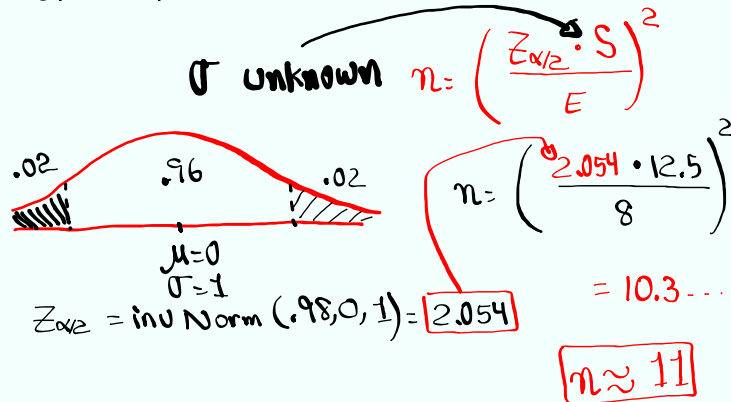 σ unknown n = (Zα/2 · S / E)²
.02 .96 .02
n = (2.054 · 12.5 / 8)²
μ=0
σ=1
Zα/2 = invNorm(.98,0,1) = 2.054
= 10.3...
n ≈ 11